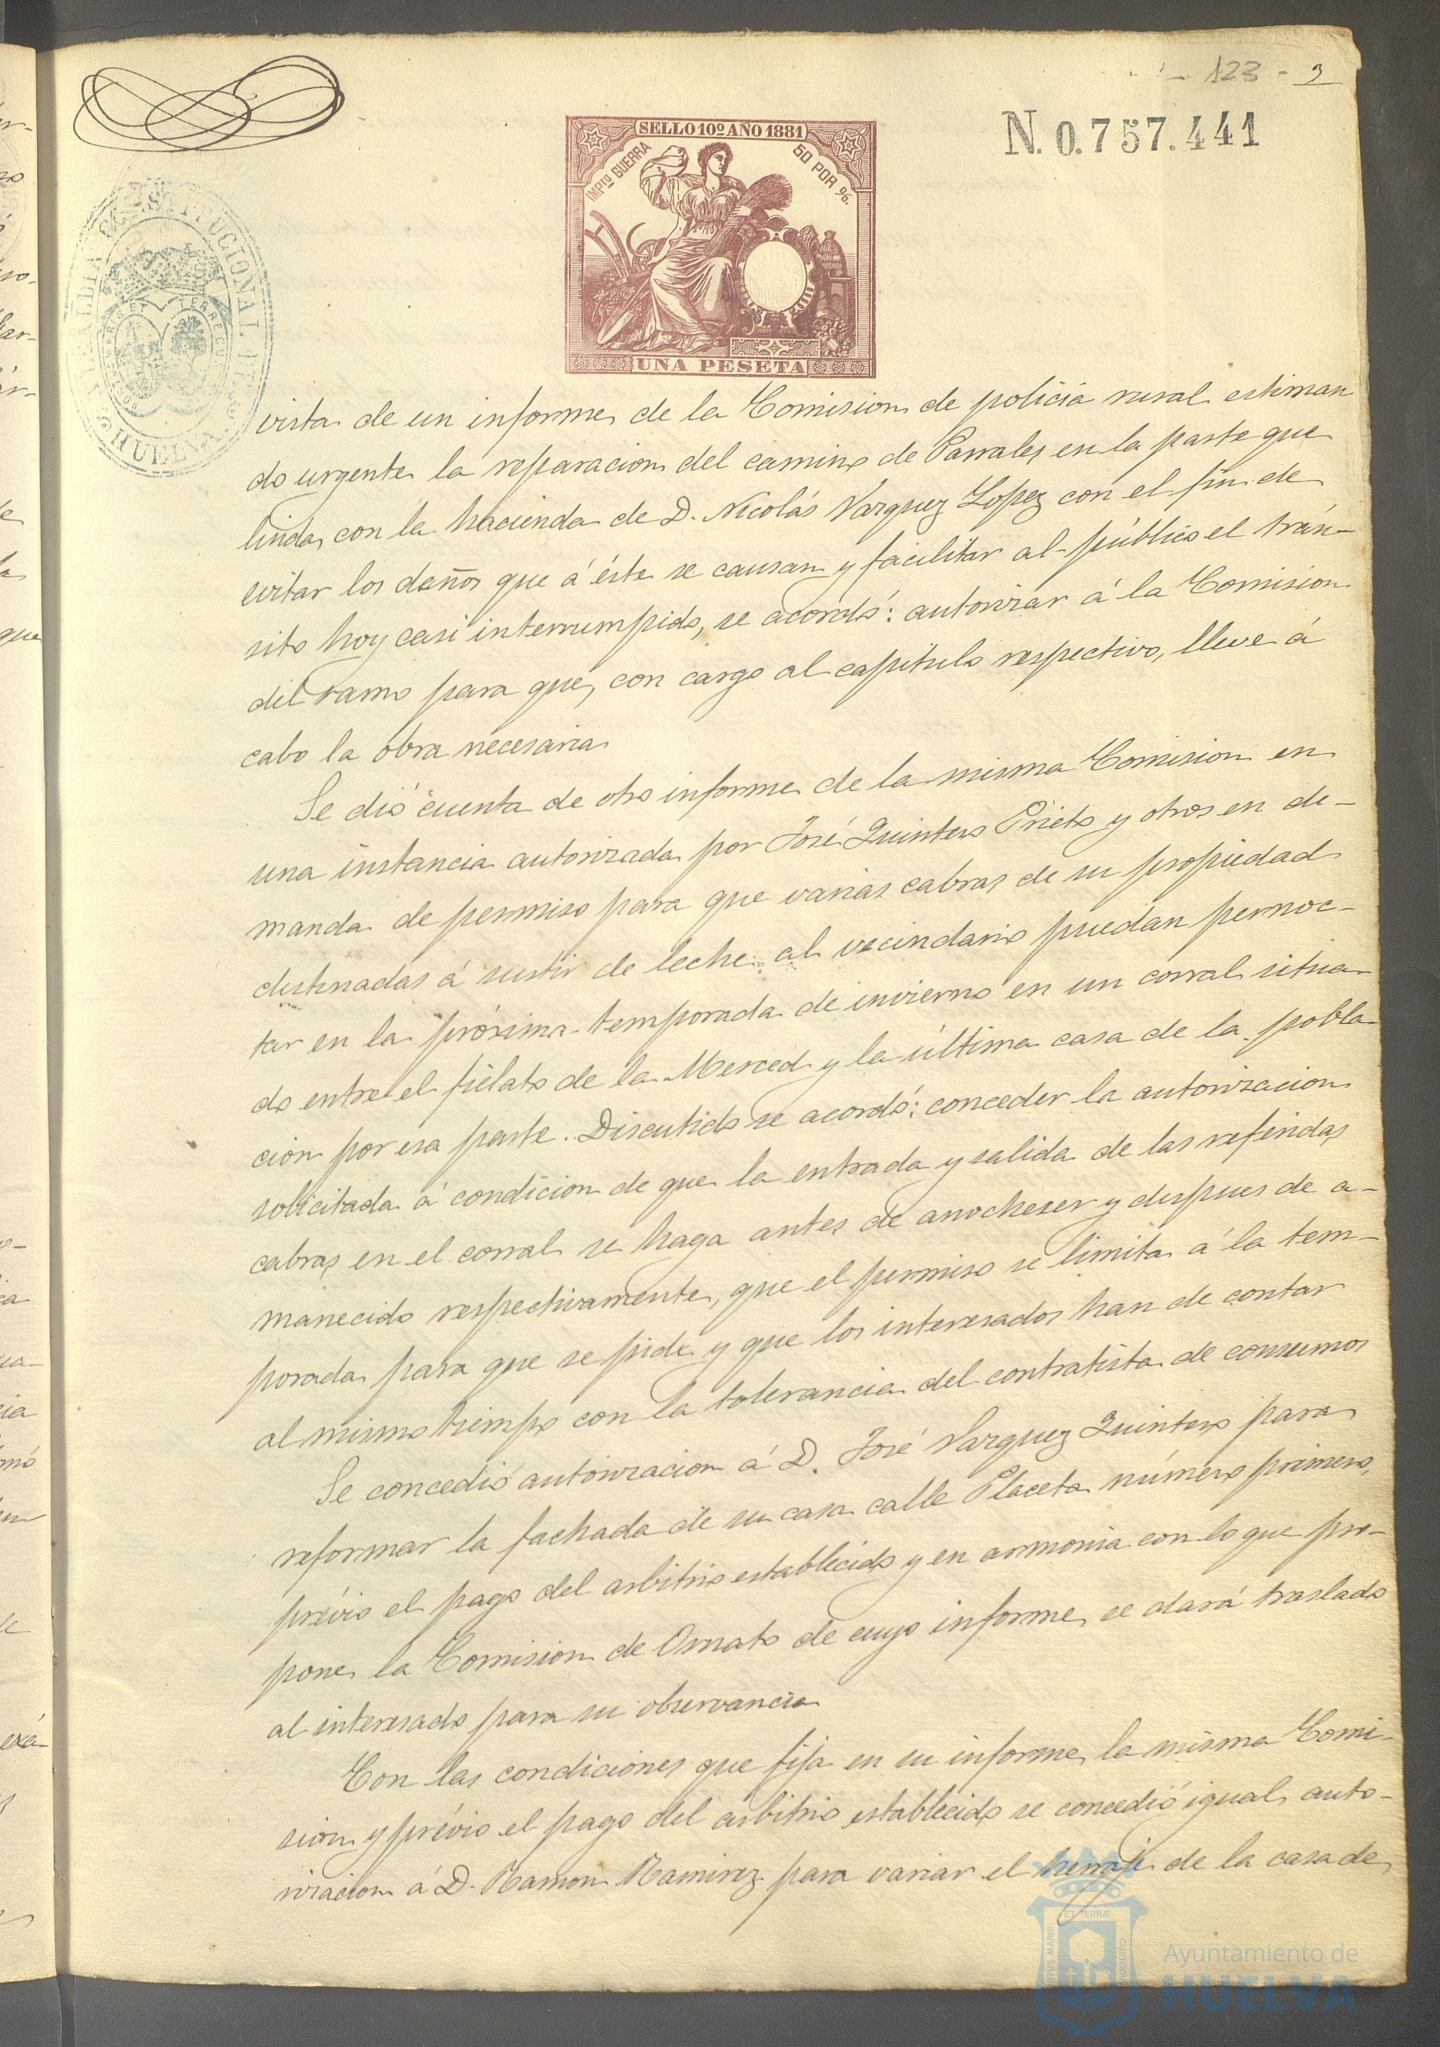 123 - 3
N. 0.757.441
SELLO 10º AÑO 1881
IMPTO GUERRA
50 POR %.
UNA PESETA
ALCALDIA CONSTITUCIONAL DE
HUELVA
vista de un informe de la Comision de policia rural estiman
do urgente la reparacion del camino de Parrales en la parte que
linda con la hacienda de D. Nicolás Vazquez Lopez con el fin de
evitar los daños que á éste se causan y facilitar al público el trán-
sito hoy casi interrumpido, se acordó: autorizar á la Comision
del ramo para que, con cargo al capitulo respectivo, lleve á
cabo la obra necesaria
Se dió cuenta de otro informe de la misma Comision en
una instancia autorizada por José Quintero Prieto y otros en de-
manda de permiso para que varias cabras de su propiedad
destinadas á surtir de leche al vecindario puedan pernoc-
tar en la próxima temporada de invierno en un corral situa-
do entre el fielato de la Merced y la última casa de la pobla-
cion por esa parte. Discutido se acordó: conceder la autorizacion
solicitada á condicion de que la entrada y salida de las referidas
cabras en el corral se haga antes de anochecer y despues de a-
manecido respectivamente, que el permiso se limita á la tem-
porada para que se pide y que los interesados han de contar
al mismo tiempo con la tolerancia del contratista de consumos
Se concedió autorizacion á D. José Vazquez Quintero para
reformar la fachada de su casa calle Placeta número primero,
prévio el pago del arbitrio establecido y en armonia con lo que pro-
pone la Comision de Ornato de cuyo informe se dará traslado
al interesado para su observancia
Con las condiciones que fija en su informe la misma Comi-
sion y prévio el pago del arbitrio establecido se concedió igual auto-
rizacion á D. Ramon Ramirez para variar el herraje de la casa de
Ayuntamiento de
HUELVA